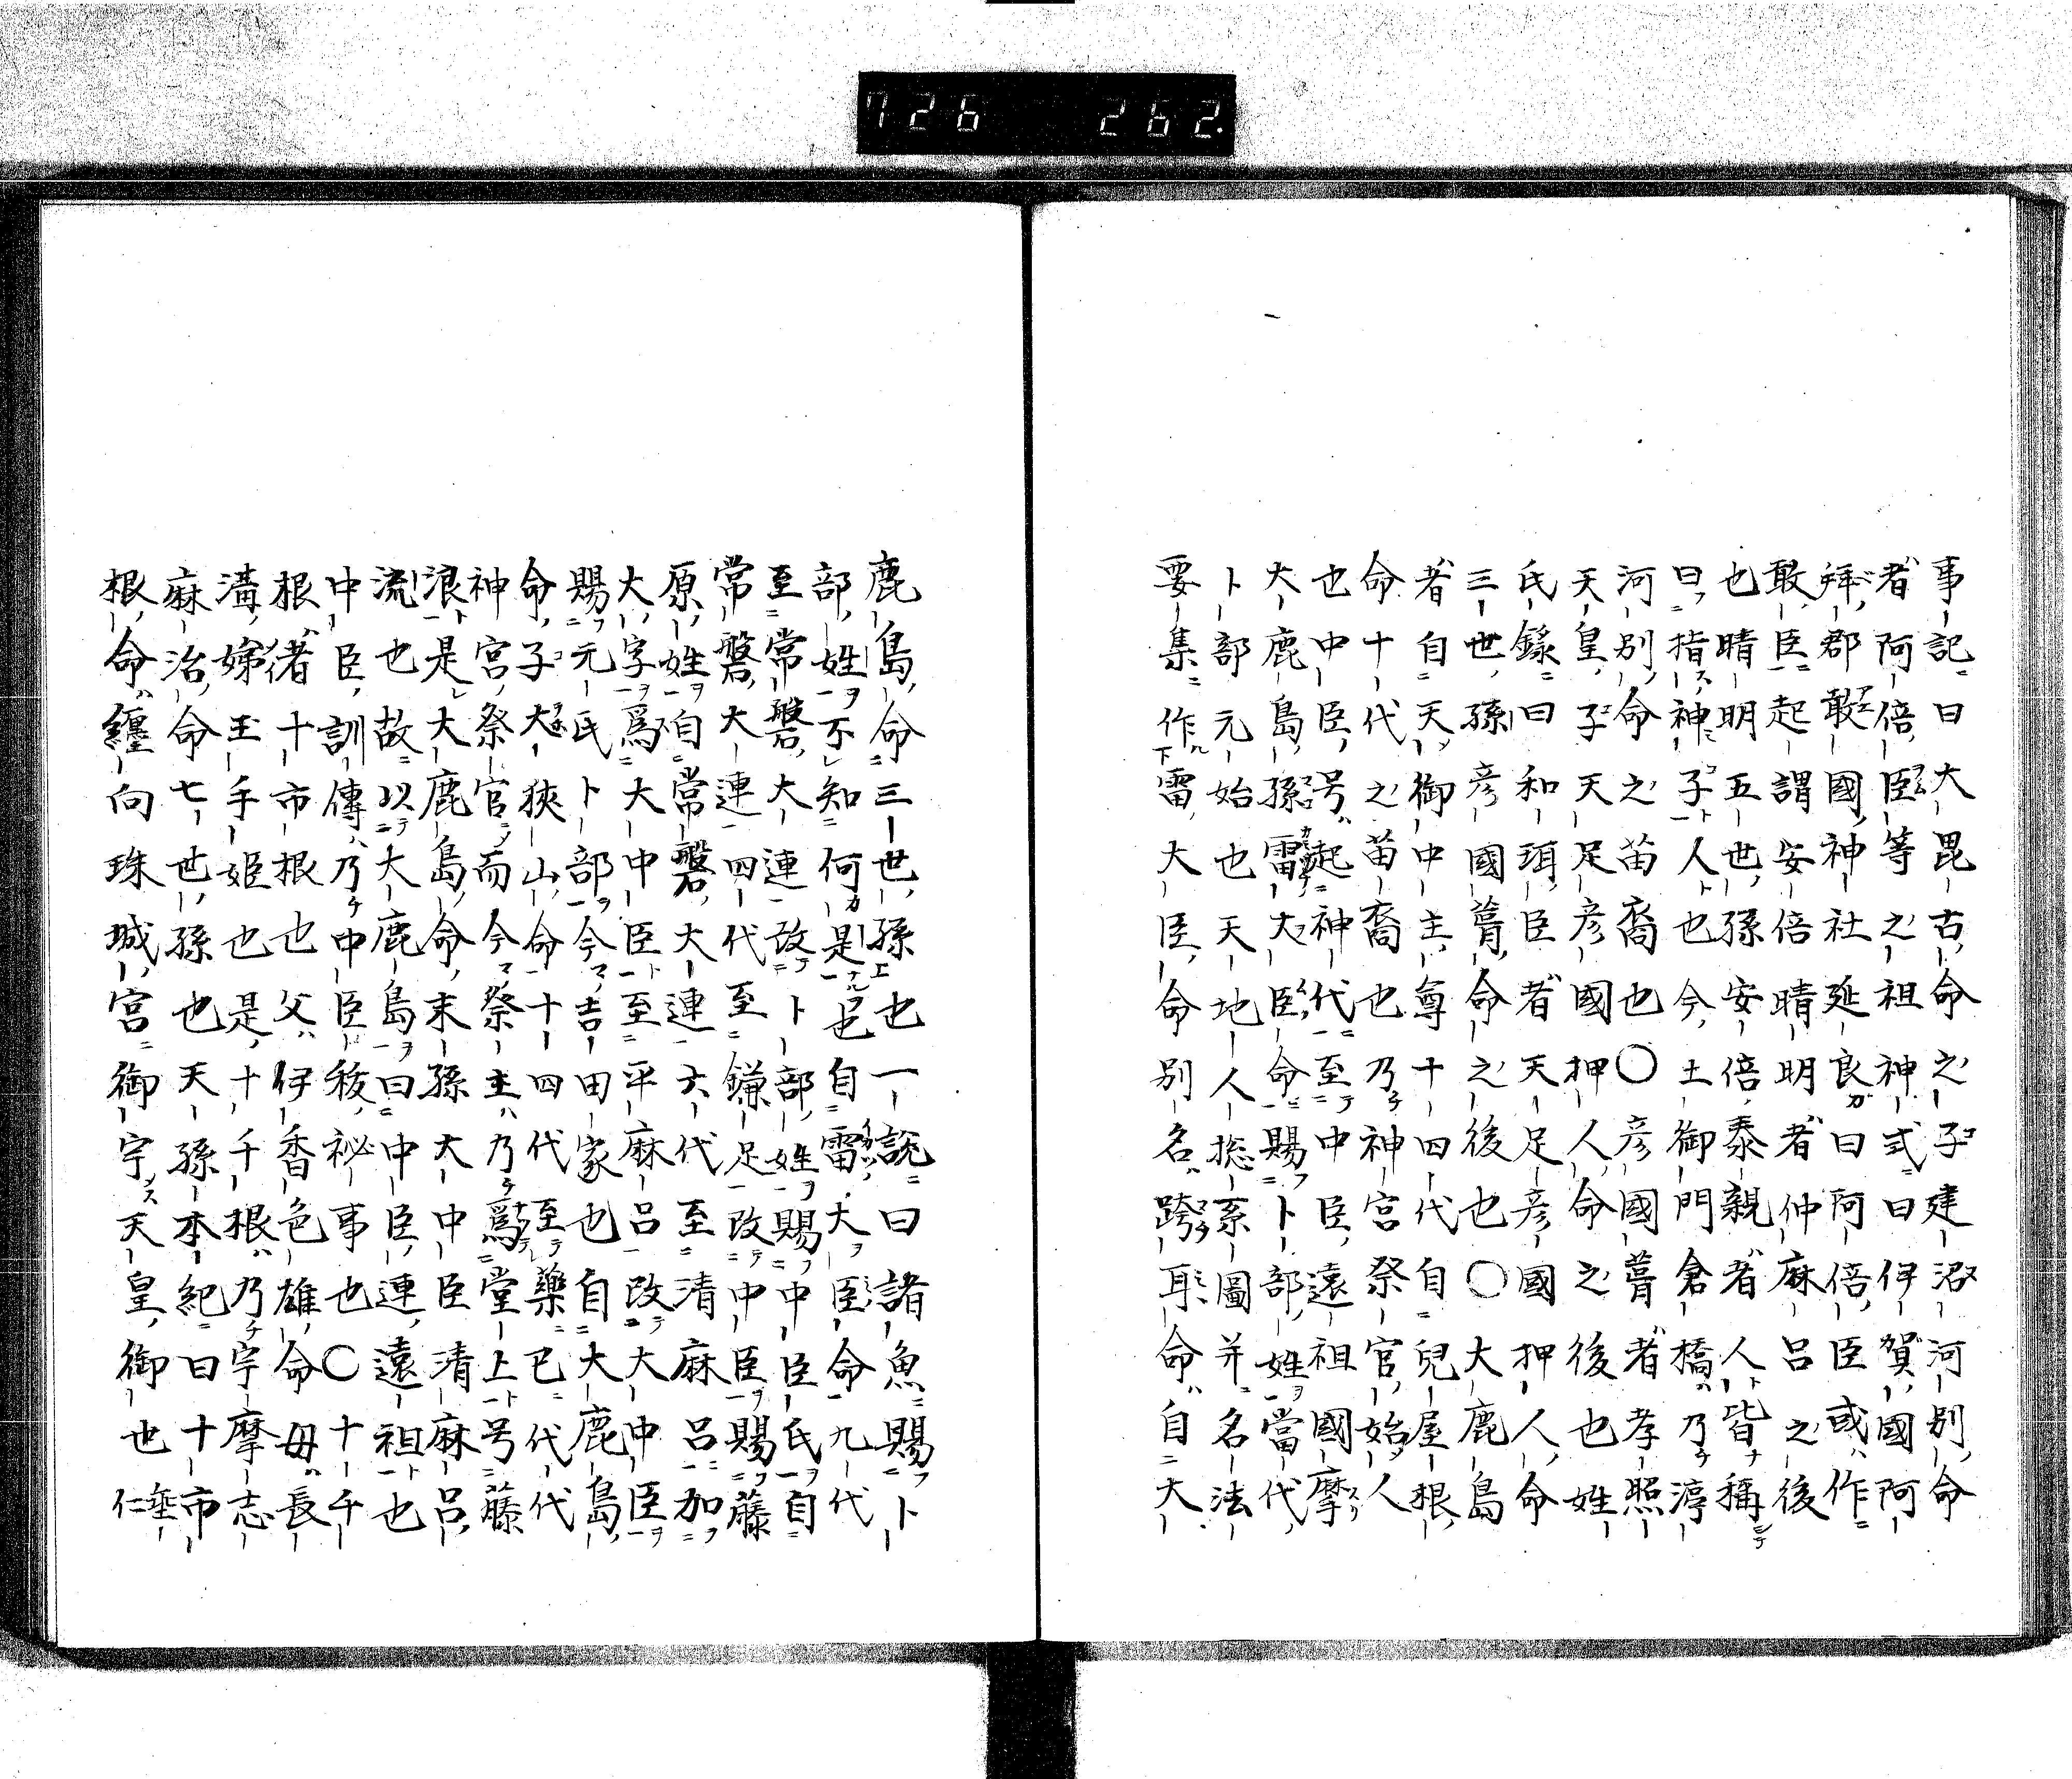 726 262.
事記曰大毘古命之子建沼河別命
者阿倍臣等之祖神式曰伊賀國阿
拜郡敢國神社延良曰阿倍臣或作
敢臣起謂安倍晴明者仲麻呂之後
也晴明五世孫安倍泰親者人皆稱
曰指神子人也今土御門倉橋乃渟
河別命之苗裔也〇彦國葺者孝照
天皇子天足彦國押人命之後也姓
氏録曰和珥臣者天足彦國押人命
三世孫彦國葺命之後也〇大鹿島
者自天御中主尊十四代自兒屋根
命十代之苗裔也乃神宮祭官始人
也中臣号起神代至中臣遠祖國摩
大鹿島孫雷大臣命賜卜部姓當代
卜部元始也天地人捴系圖并名法
要集作雷大臣命別名跨耳命自大
鹿島命三世孫也一説曰諸魚賜卜
部姓不知何是邑自雷大臣命九代
至常磐大連改卜部姓賜中臣氏自
常磐大連四代至鎌足改中臣賜藤
原姓自常磐大連六代至清麻呂加
大字爲大中臣至平麻呂改大中臣
賜元氏卜部今吉田家也自大鹿島
命子大狹山命十四代至藥已代代
神宮祭官而今祭主乃爲堂上号藤
浪是大鹿島命末孫大中臣清麻呂
流也故以大鹿島曰中臣連遠祖也
中臣訓傳乃中臣秡祕事也〇十千
根者十市根也父伊香色雄命母長
溝娣玉手姫也是十千根乃宇摩志
麻治命七世孫也天孫本紀曰十市
根命纏向珠城宮御宇天皇御也垂仁